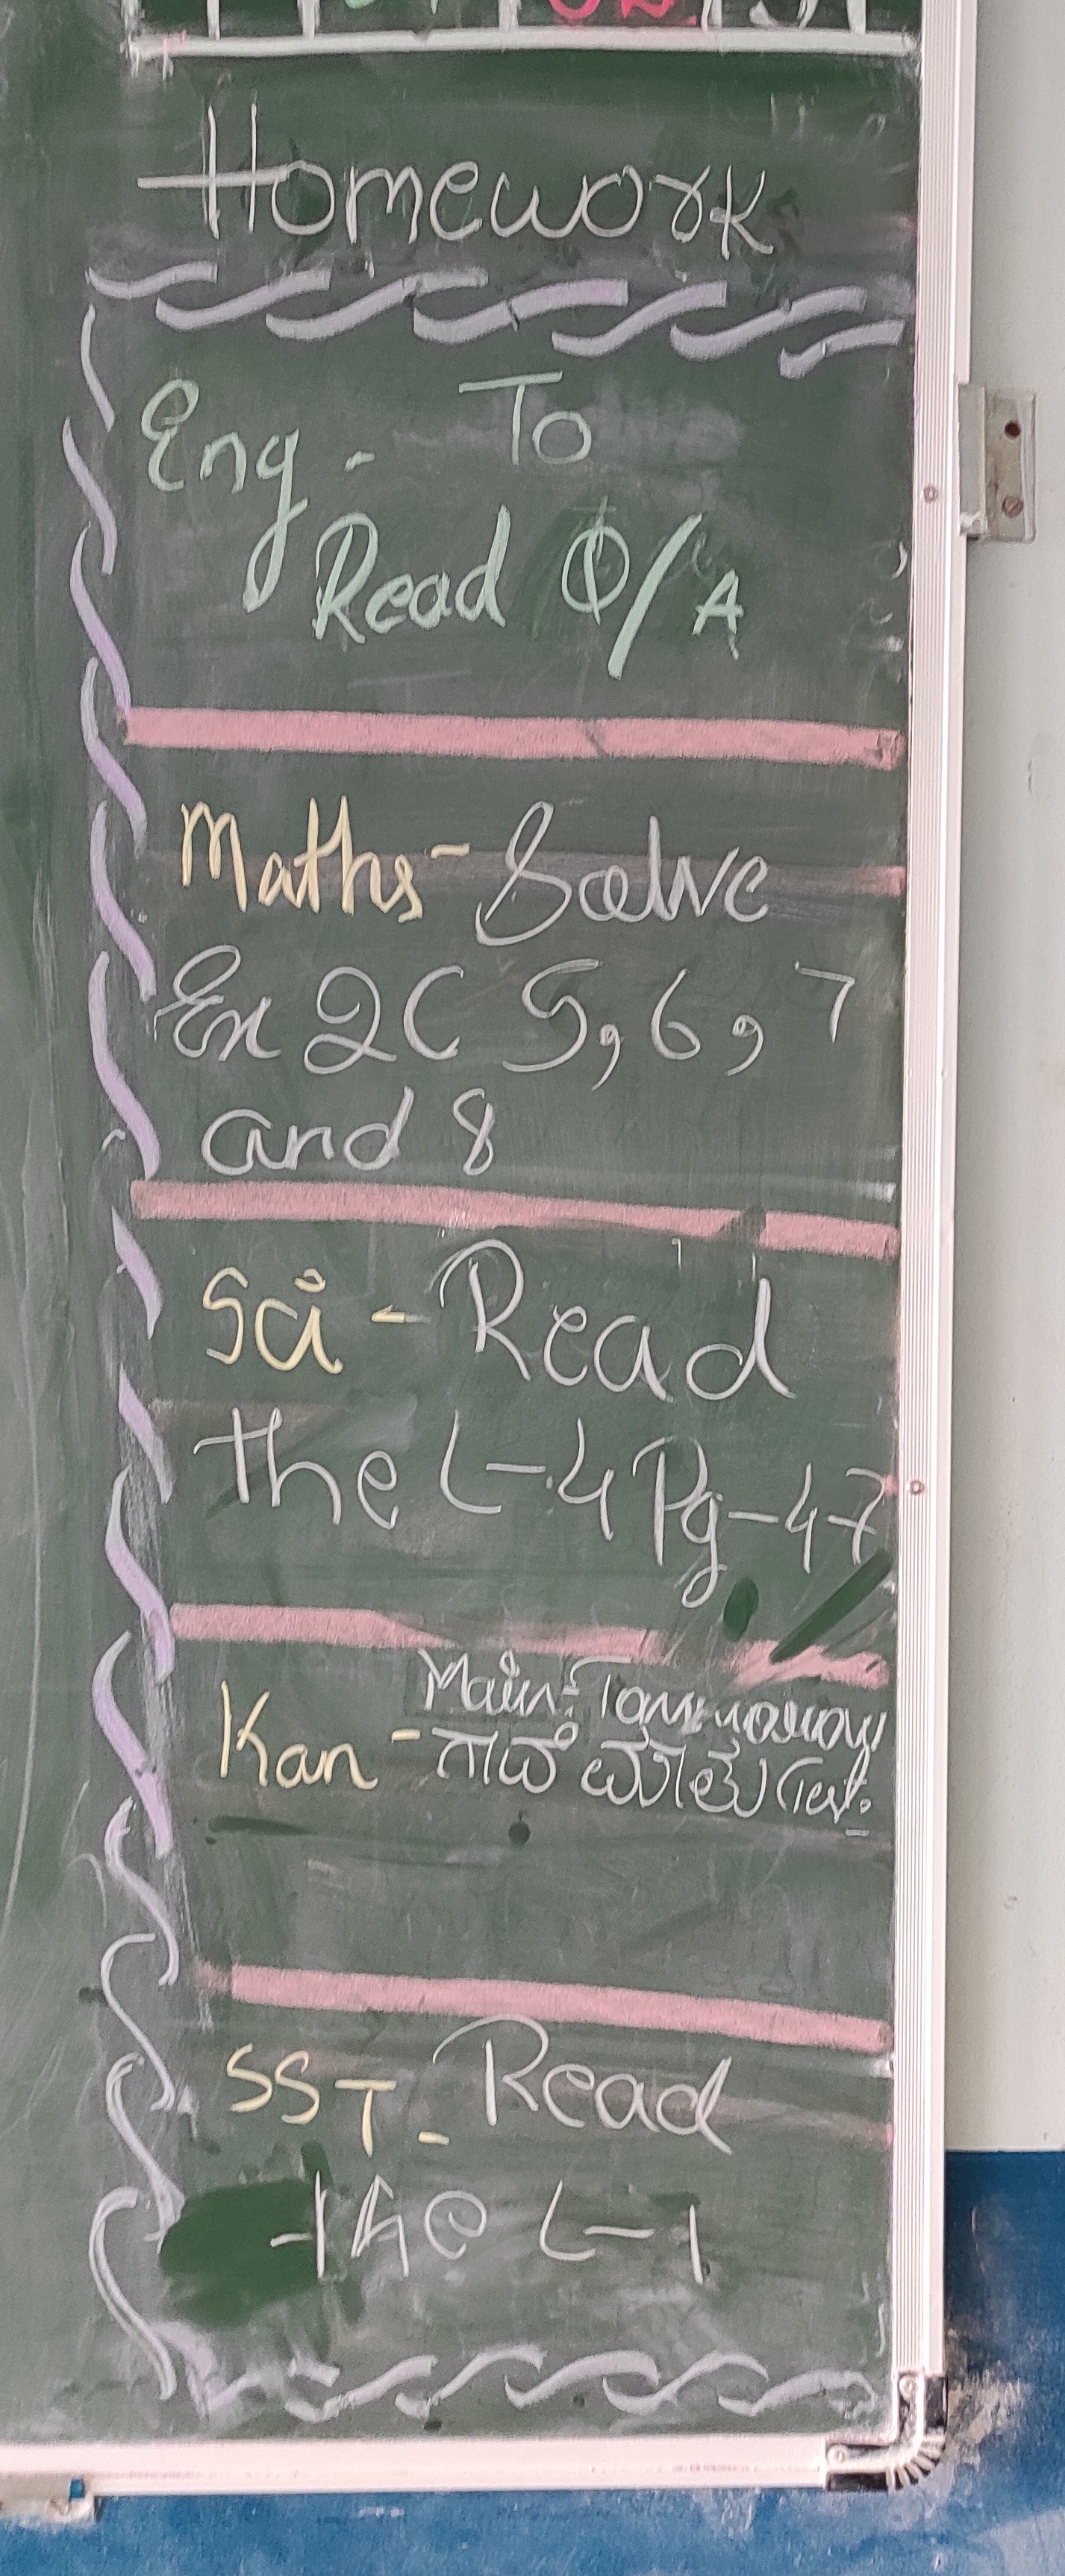 Homework
Eng - To
Read Q/A
Maths - Solve
Ex 2C 5, 6, 7
and 8
Sci - Read
the L-4 Pg-47
Main:
Kan - ಗಾದೆ ಮಾತು Test.
SST - Read
the L-1